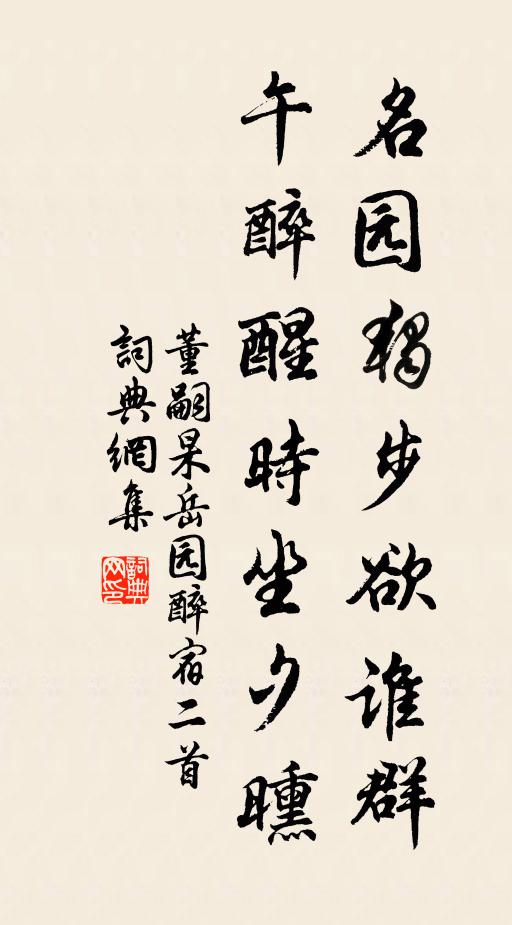 名园獨步欲誰群
午醉醒時坐夕曛
董嗣杲岳园醉宿二首
詞典網集
詞典網印